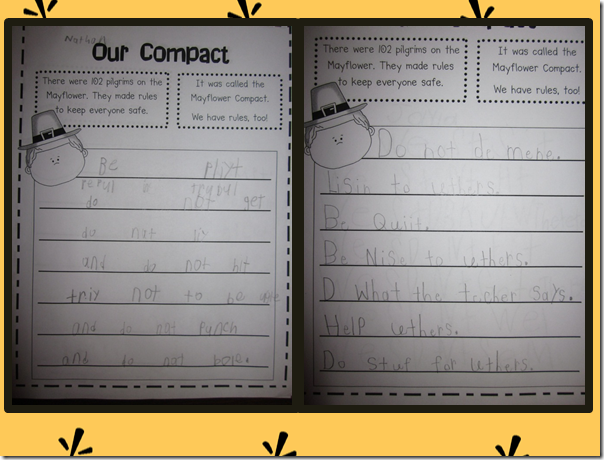 Nathan
Our Compact
There were 102 pilgrims on the
Mayflower. They made rules
to keep everyone safe.
It was called the
Mayflower Compact.
We have rules, too!
Be
do not get
do not
and do not hit
triy not to be
and do not punch
and do not
There were 102 pilgrims on the
Mayflower. They made rules
to keep everyone safe.
It was called the
Mayflower Compact.
We have rules, too!
Do not de mene.
Lisin to uthers.
Be Quiit.
Be Nise to uthers.
D What the techer says.
Help uthers.
Do stuf for uthers.